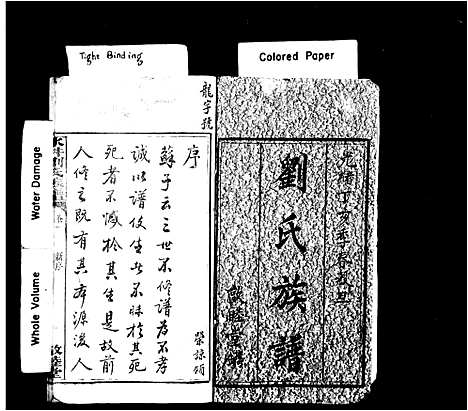 Tight Binding
Colored Paper
Water Damage
Whole Volume
光緒丁亥季
劉氏族譜
敦睦堂
龍字號
榮諒領
序
蘇子云三世不修譜為不孝
誠以譜使生者不昧於其死
死者不憾於其生是故前
人修之既有其本源後人
敦睦堂